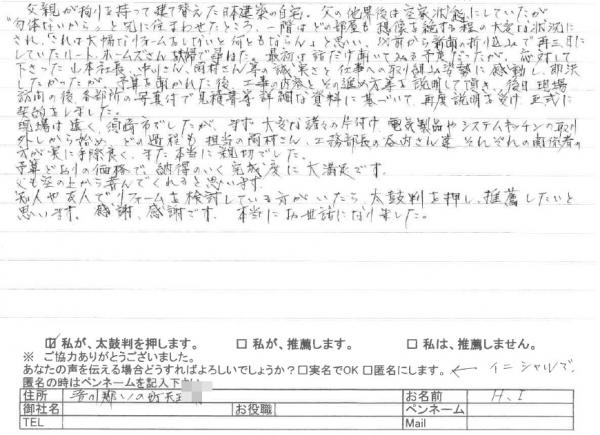 父親が拘りを持って建て替えた日本建築の自宅。父の他界後は空家状態にしていたが
"勿体ないから"と兄に住まわせたところ、一階はどの部屋も想像を絶する程の大変な状況に
され、"これは大幅なリフォームをしないと何ともならん"と思い、以前から新聞の折り込みで再三目に
していたリードホームズさんを訪ねた。最初は話だけ聞いてみる予定だったが、応対して
下さった山本社長、中川さん、岡村さん等の誠実さと仕事への取り組み姿勢に感動し、即決
したかったが、予算を聞かれた後、工事の内容とその進め方等を説明して頂き、後日現場
訪問の後、各部所の写真付で見積書等詳細な資料に基づいて、再度説明を受け、正式に
契約をしました。
現場は遠く、須崎市でしたが、まず大変な諸々の片付け、電気製品やシステムキッチンの取り
外しから始め、どの過程も担当の岡村さん、工務部長の
それぞれの関係者の
方が実に手際良く、また本当に親切でした。
予算どおりの価格で、納得のいく完成度に大満足です。
父も空の上から喜んでくれると思います。
知人や友人でリフォームを検討している方がいたら、太鼓判を押し、推薦したいと
思います。感謝、感謝です。本当にお世話になりました。
☑ 私が、太鼓判を押します。 □ 私が、推薦します。 □ 私は、推薦しません。
※ ご協力ありがとうございました。
あなたの声を伝える場合どうすればよろしいでしょうか？□実名でOK □匿名にします。 ← イニシャルで。
匿名の時はペンネームを記入下さい
住所 吾川郡いの町天王 お名前 H.I
御社名 お役職 ペンネーム
TEL Mail